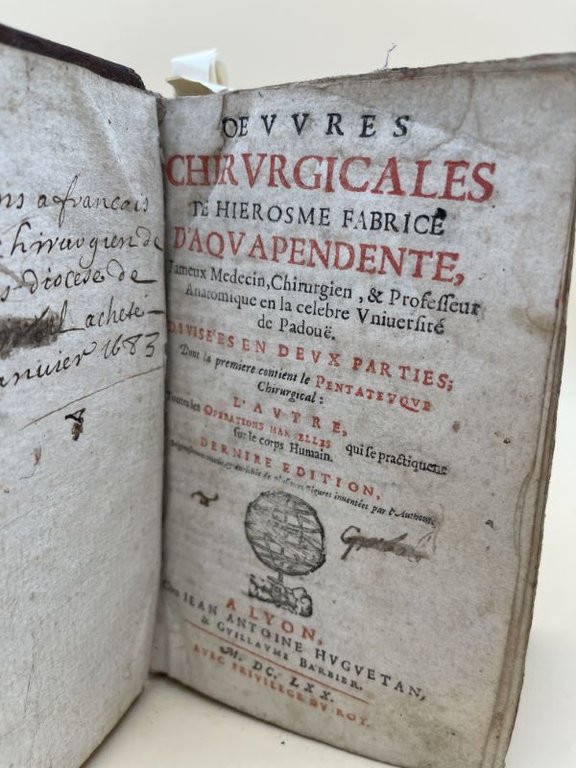 ns a francais
chirurgien de
diocese de
achete
anvier 1683
OEVVRES
CHIRVRGICALES
DE HIEROSME FABRICE
D'AQVAPENDENTE,
Fameux Medecin, Chirurgien, & Professeur
Anatomique en la celebre Vniuersité
de Padouë.
DIVISE'ES EN DEVX PARTIES;
Dont la premiere contient le PENTATEVQVE
Chirurgical:
L'AVTRE,
Toutes les OPERATIONS MANVELLES qui se practiquent
sur le corps Humain.
DERNIRE EDITION,
de plusieurs Figures inuentées par l'Autheur.
A LYON,
Chez IEAN ANTOINE HVGVETAN,
& GVILLAVME BARBIER.
M. DC. LXX.
AVEC PRIVILEGE DV ROY.